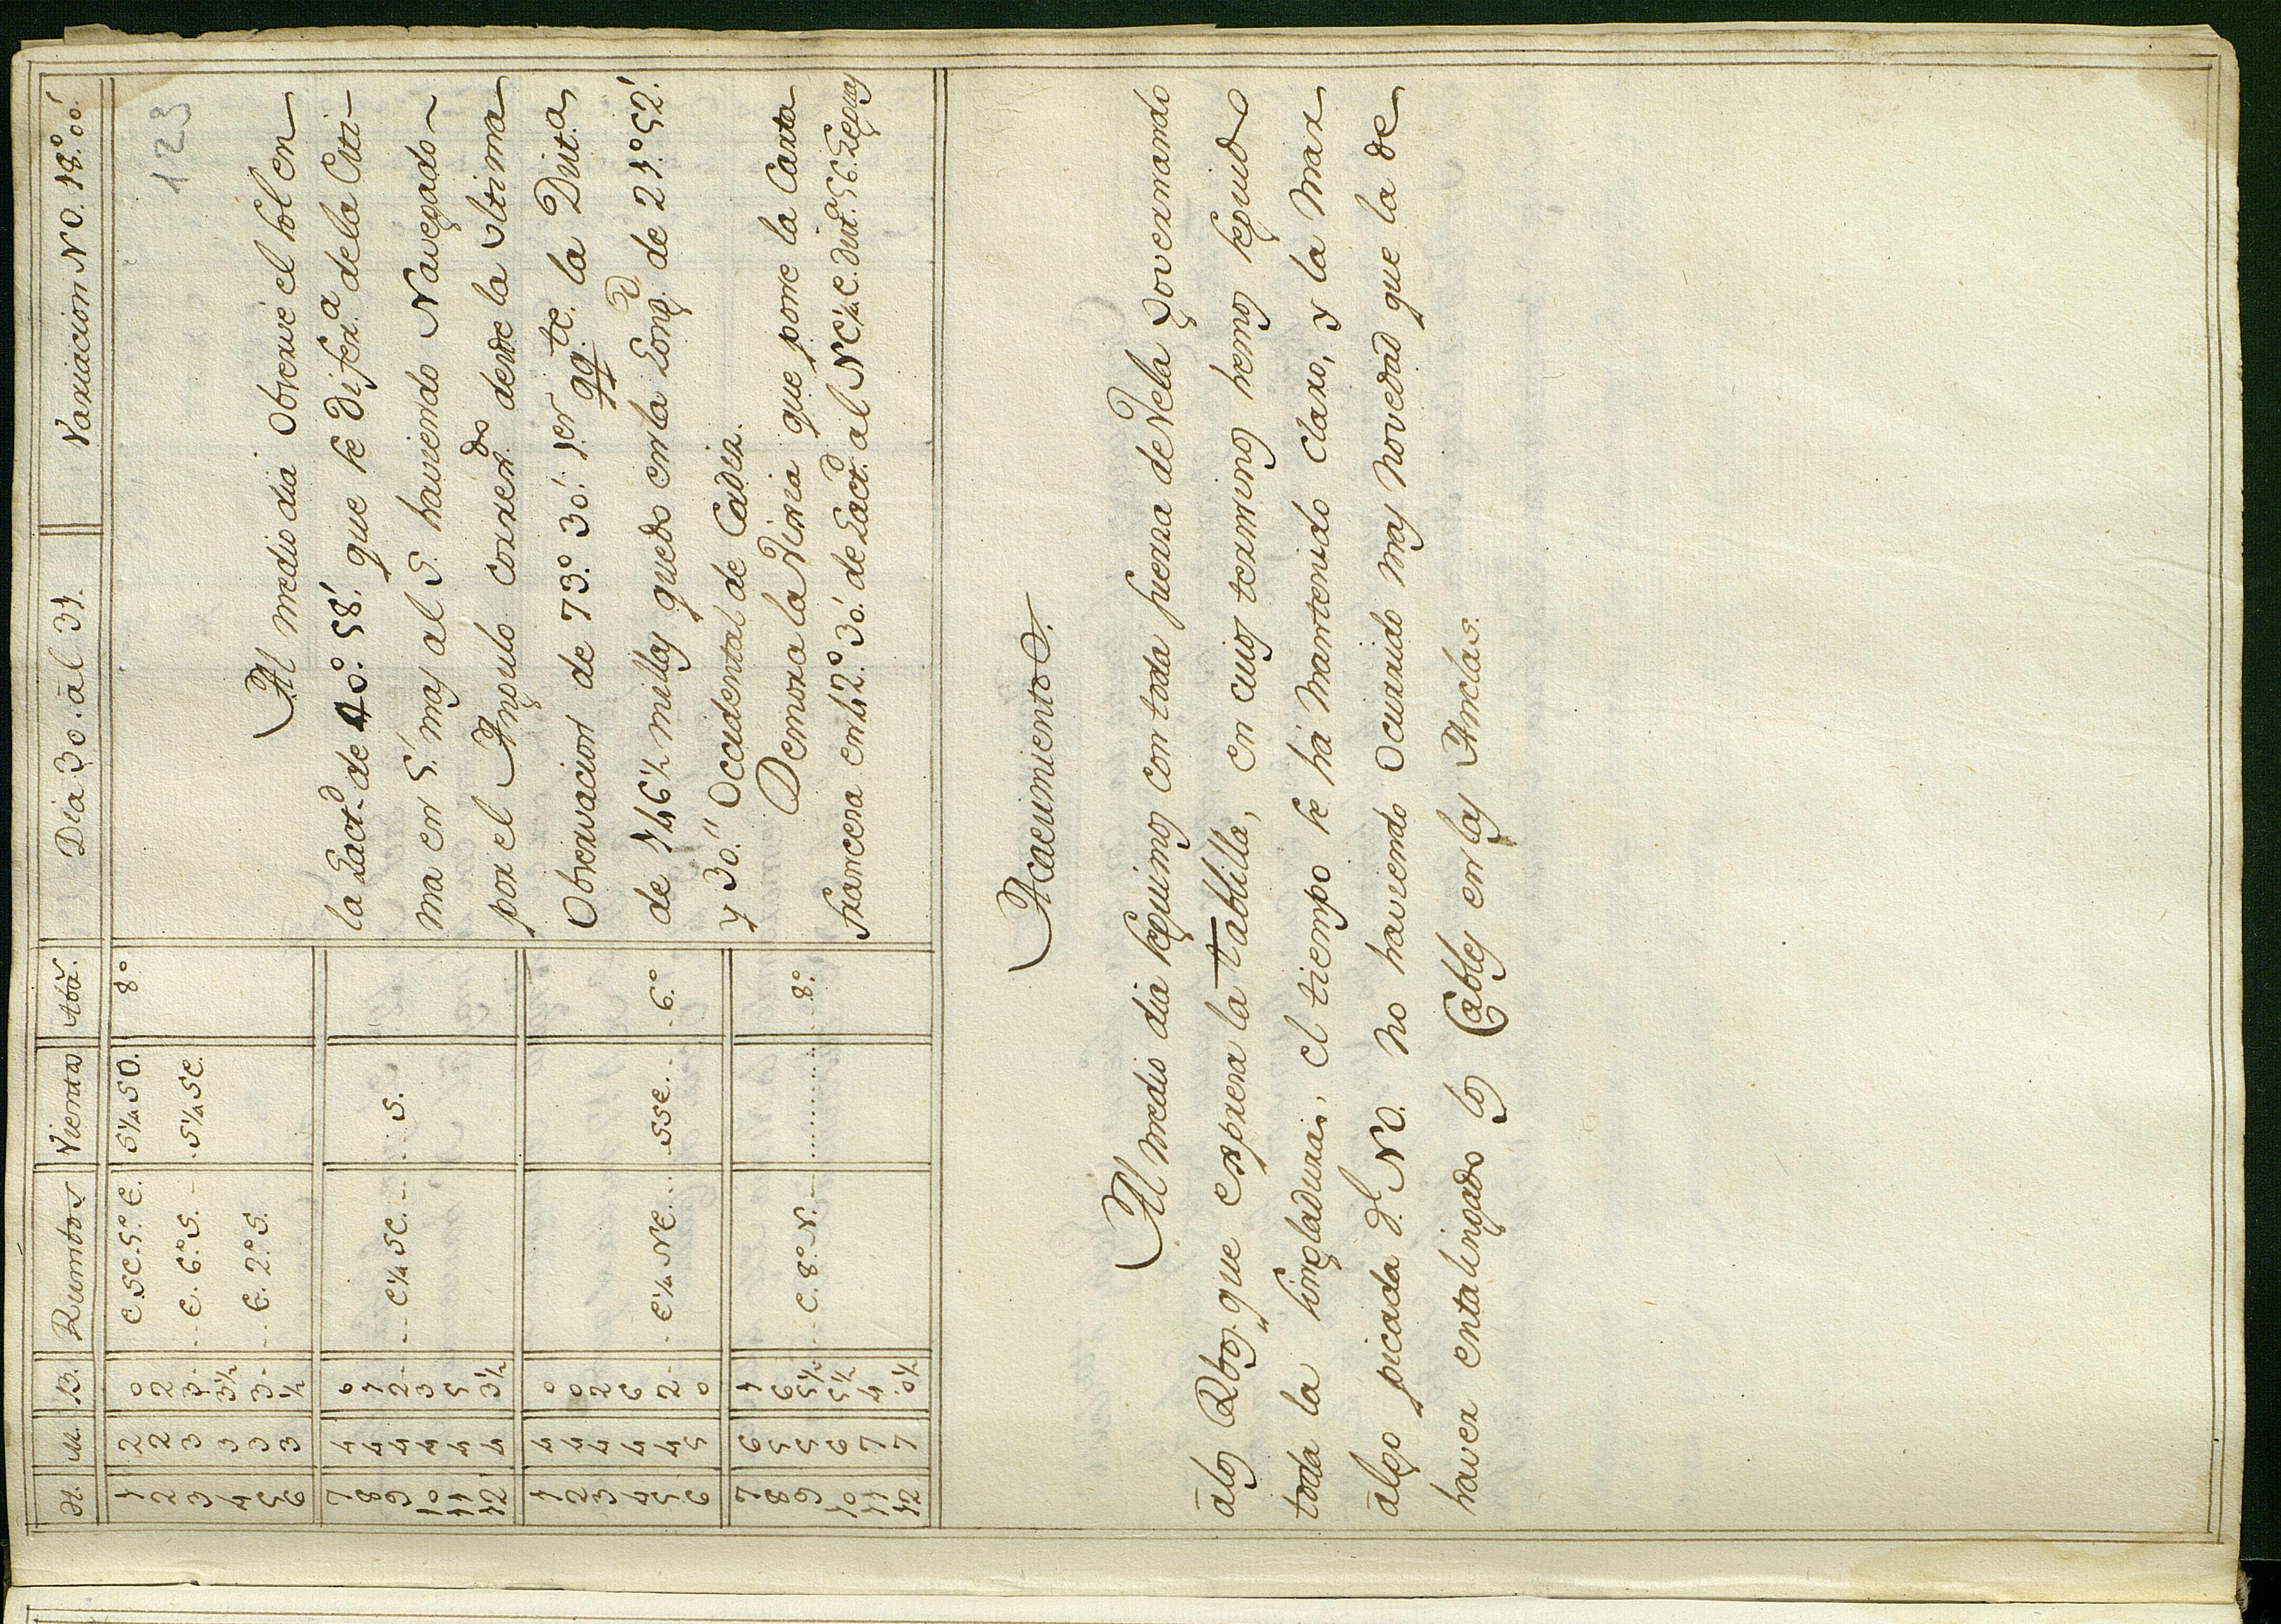 H. M. B. Rumbos Vientos Aba. Dia 30. al 31. Variacion NO. 18.° 00'
123
1 2 0 E.SE.5.° E. S¼SO. 8°
2 2 2
3 3 3. E. 6.° S. S¼SE.
4 3 3½
5 3 3. E. 2.° S.
6 3 ½
7 4 0
8 4 1
9 4 2 E¼SE. S.
10 4 3
11 4 5
12 4 3½
1 4 0
2 4 0
3 4 2
4 4 6
5 4 2 E¼NE. SSE. 6.°
6 5 0
7 6 1
8 5 6
9 5 5½ E. 8.° N. 8.°
10 6 5½
11 7 4
12 7 0½
Al medio dia Observé el Sol en
la Lactd. de 40.° 58'. que se Difera. dela Esti-
ma en 5'. mas al S. haviendo Navegado
por el Angulo Correxdo. desde la Ultima
Observacion de 73.° 30'. 1.er qq.te. la Dista.
de 146½ millas quedo en la Longd. de 21.° 52'.
y 30." Occidental de Cadiz.
Demora la Virxia que pone la Carta
Francesa en 42.° 30'. de Lactd. al NE¼E. Dista. 56. Leguas
Acaecimientos.
Al medio dia seguimos con toda fuerza de Vela Governando
álos Rbos. que expresa la tablilla, en cuios terminos hemos seguido
toda la Singladura, el tiempo se há mantenido claro, y la Mar
álgo picada dl. NO. no haviendo Ocurrido mas novedad que la de
haver entalingado los Cables en las Anclas.